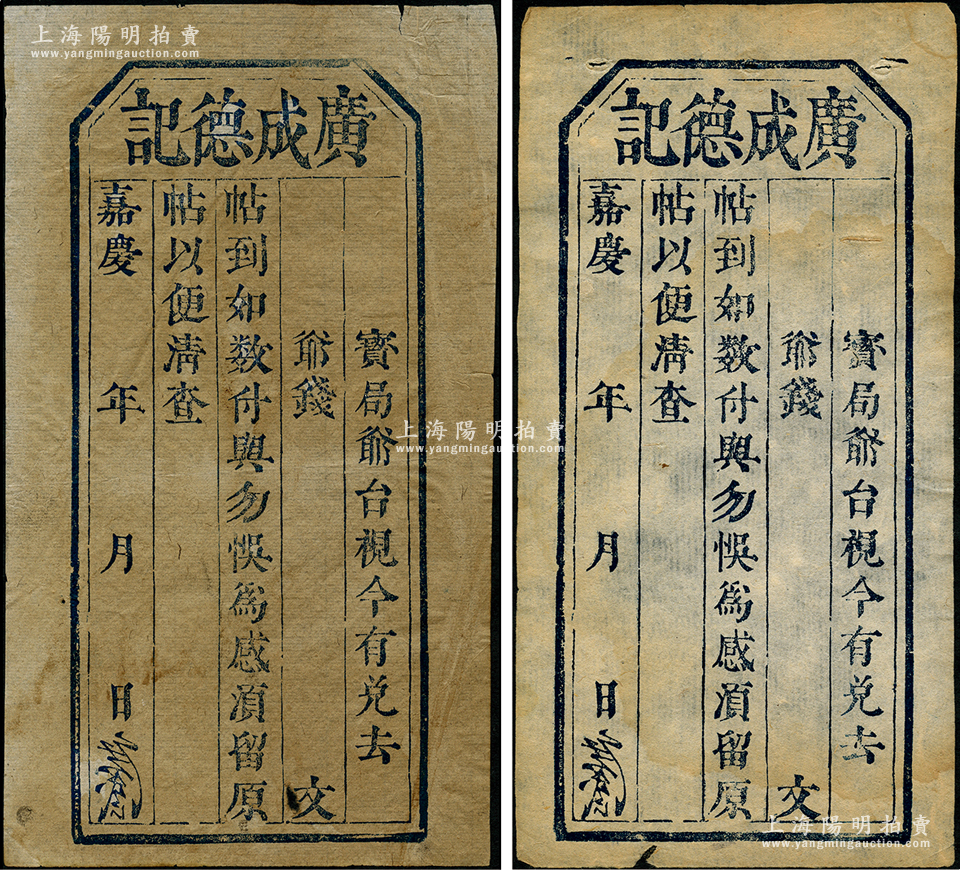 上海陽明拍賣
www.yangmingauction.com
廣成德記
寳局爺台視今有兑去
爺錢 文
帖到如数付與勿悞為感湏留原
帖以便清查
嘉慶 年 月 日
上海陽明拍賣
www.yangmingauction.com
廣成德記
寳局爺台視今有兑去
爺錢 文
帖到如数付與勿悞為感湏留原
帖以便清查
嘉慶 年 月 日
上海陽明拍賣
www.yangmingauction.com